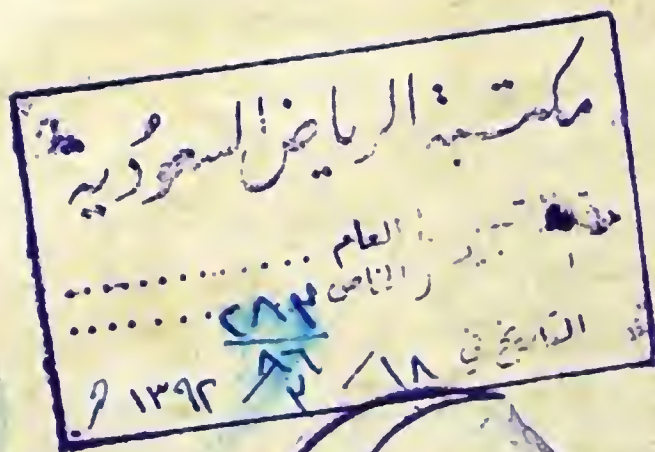 مكتبة الرياض السعودية
العام ..............
والخاص ٢٨٣/٨٦ .....
التاريخ في ١٨ / ٢ / ١٣٩٢